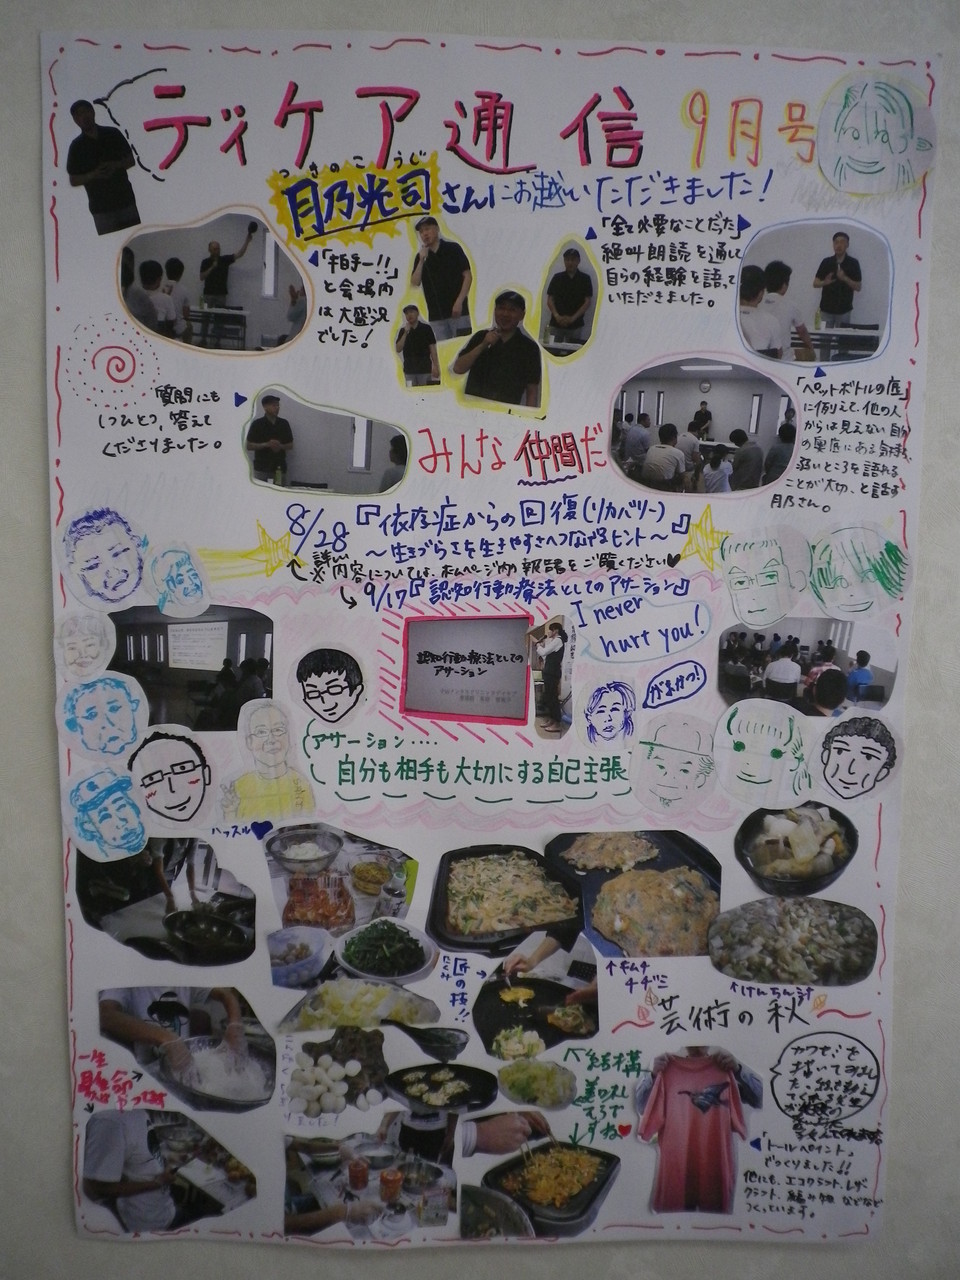 ディケア通信 9月号
つきのこうじ
月乃光司さんにお越しいただきました!
「拍手ー!!」
と会場内
は大盛況
でした!
「全て必要なことだった」
絶叫朗読を通して
自らの経験を語って
いただきました。
質問にも
1つひとつ、答えて
くださりました。
みんな仲間だ
「ペットボトルの底」
に例えて、他の人
からは見えない自分
の奥底にある気持ち、
弱いところを語れる
ことが大切、と話す
月乃さん。
8/28『依存症からの回復(リカバリー)
～生きづらさを生きやすさへつなげるヒント～』
※詳しい内容については、ホームページ内の報告をご覧ください♥
9/17『認知行動療法としてのアサーション』
I never
hurt you!
認知行動療法としての
アサーション
がまかつ!
アサーション‥‥
自分も相手も大切にする自己主張
ハッスル♥
匠の技!!
たくみ
↑キムチ
チヂミ
↑けんちん汁
芸術の秋
一生
結構
すね♥
カワセミを
「トールペイント」
でつくりました!!
他にも、エコクラフト、レザー
クラフト、編み物などなど
つくっています。